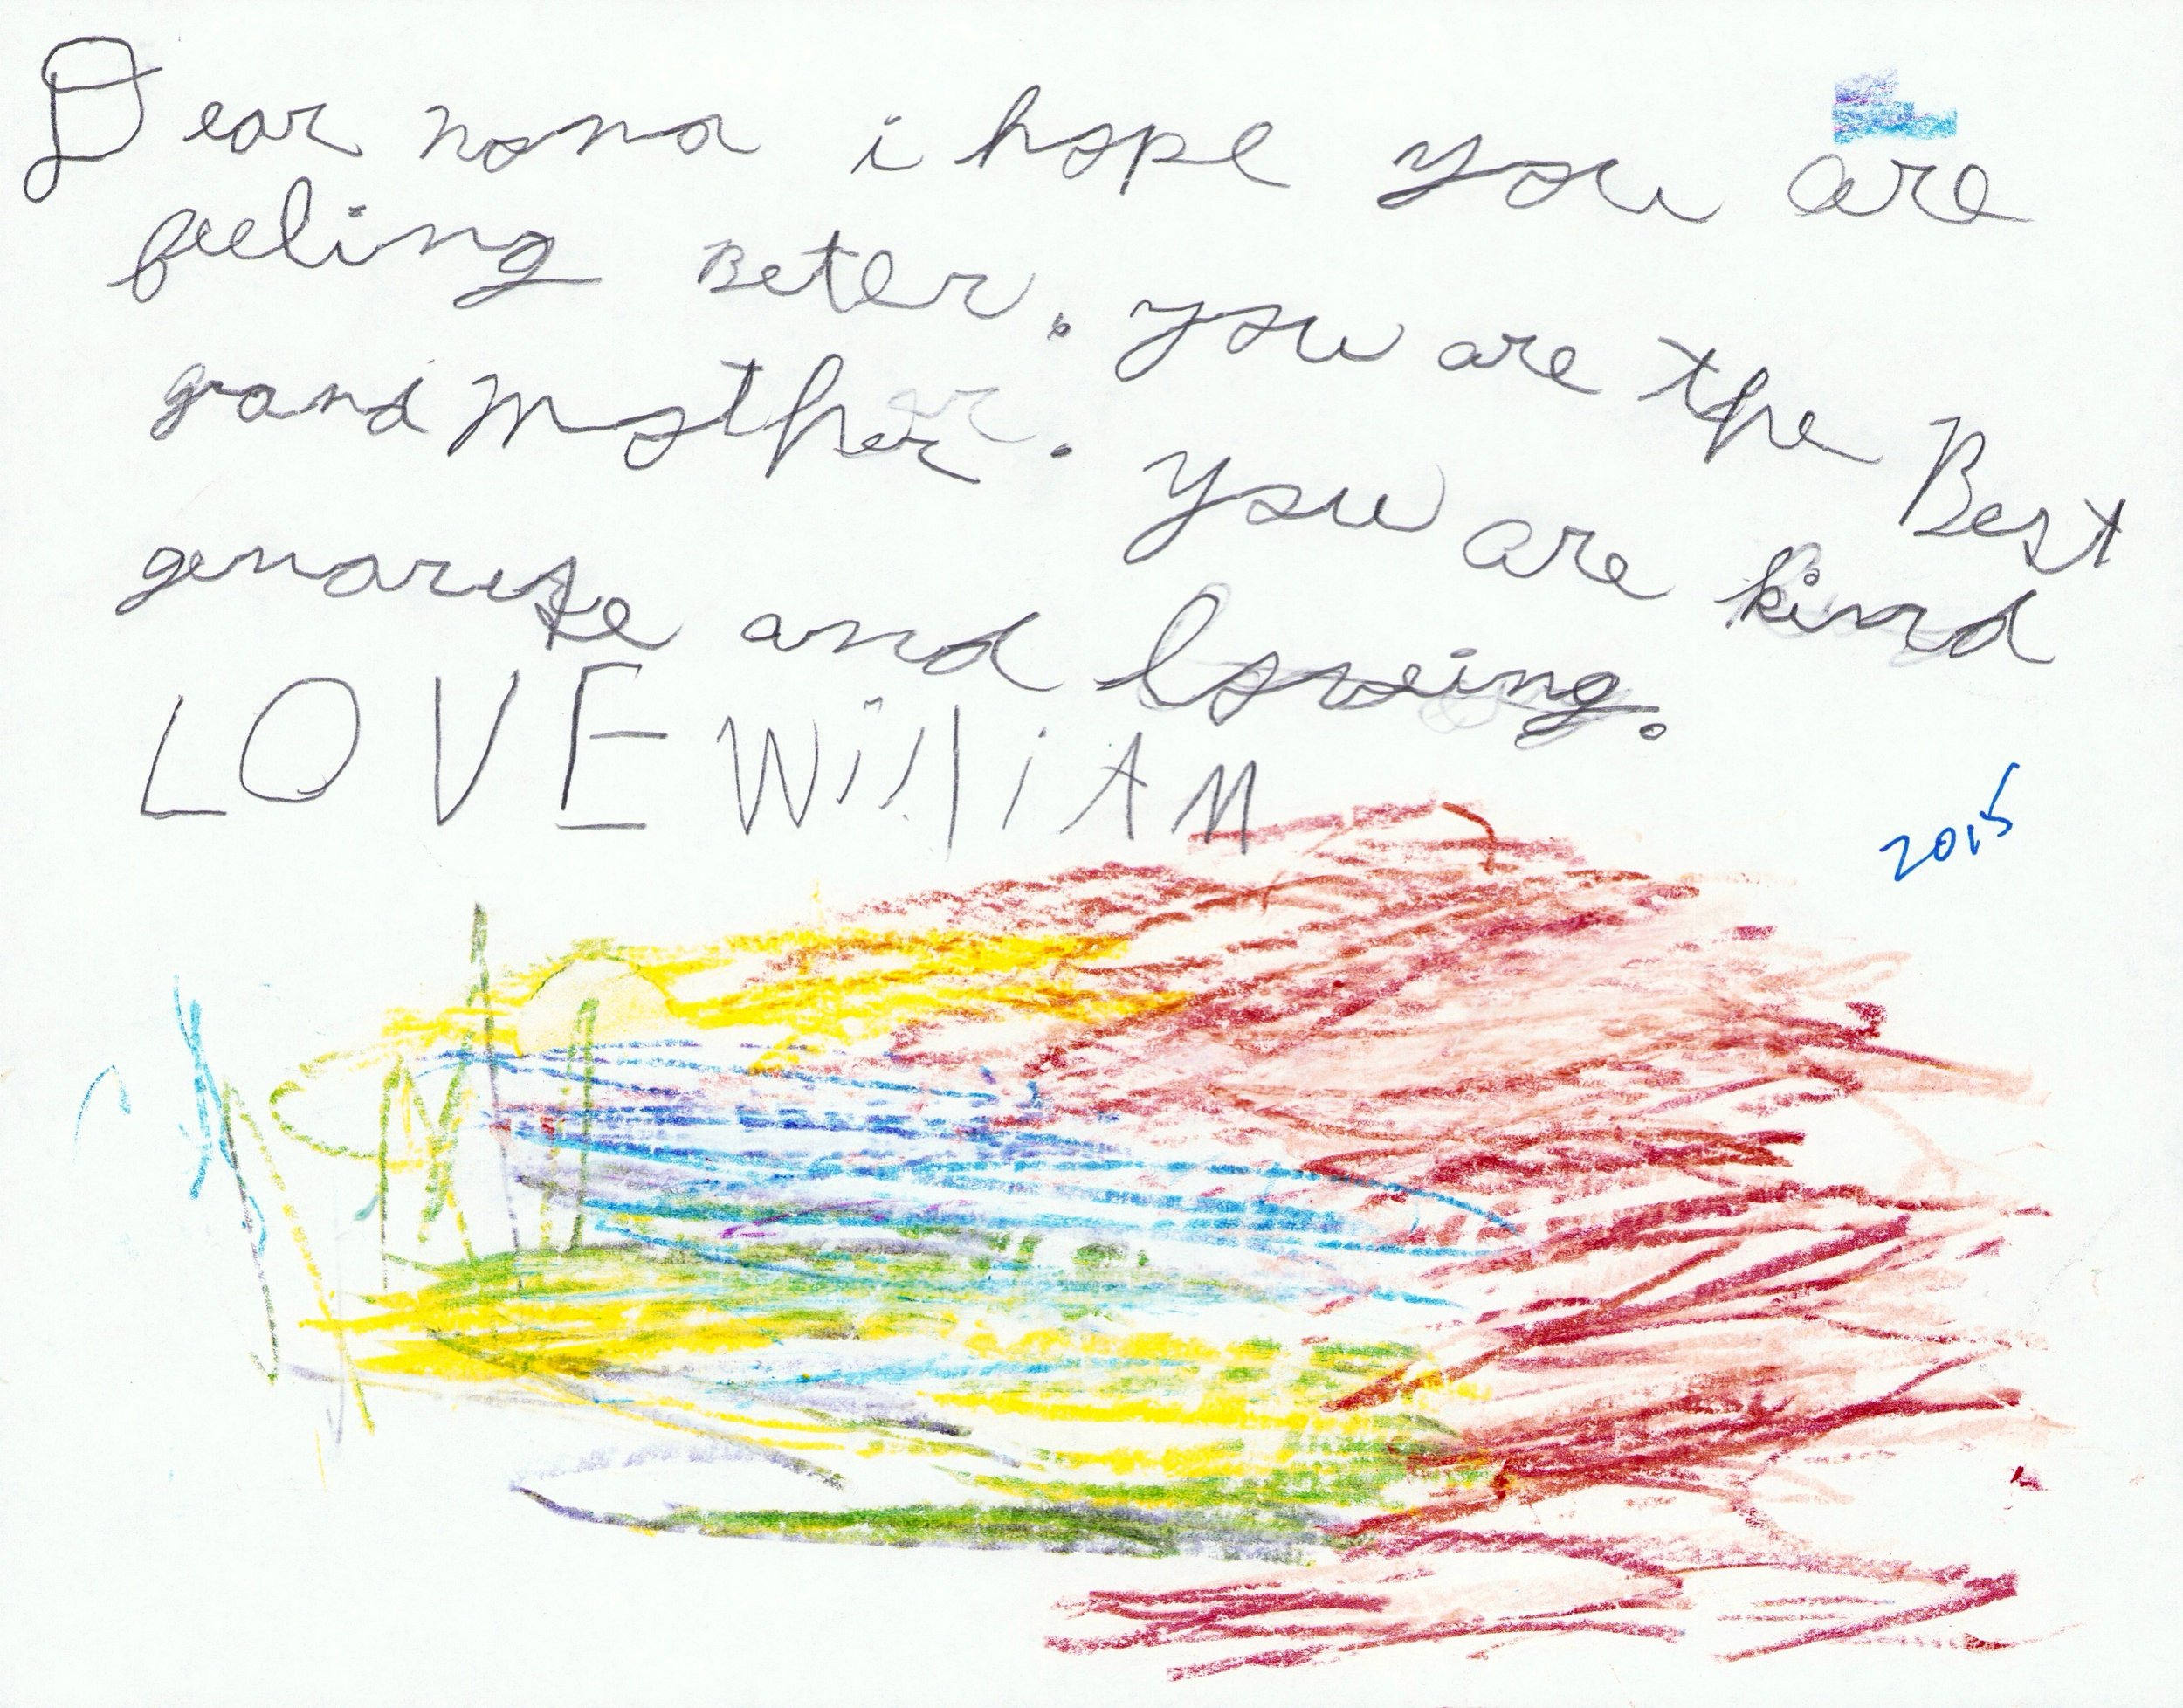 Dear nona i hope you are
feeling Beter. you are the Best
grand mother. you are kind
and loveing.
LOVE WilliAM
2015